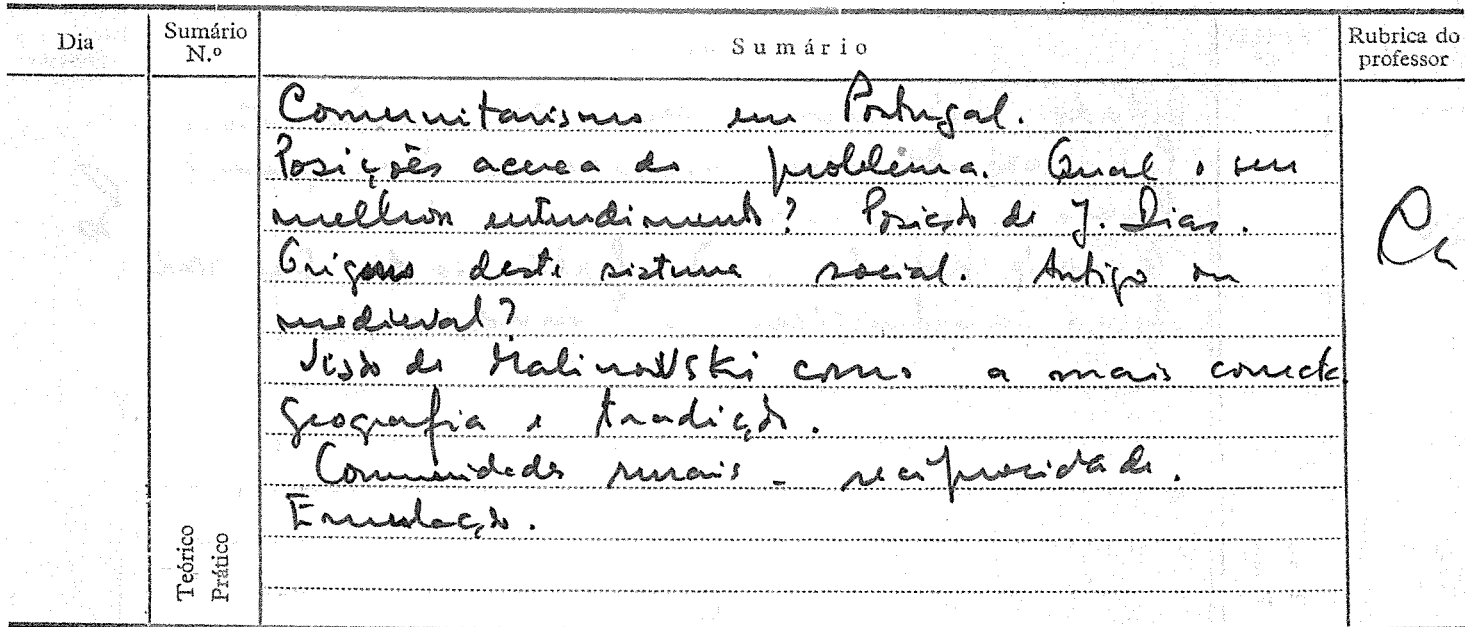 Dia
Sumário N.º
Sumário
Rubrica do professor
Comunitarismo em Portugal.
Posições acerca do problema. Qual o seu
melhor entendimento? Posição de J. Dias.
Origens deste sistema social. Antigo ou
medieval?
Visão de Malinowski como a mais correcta
geografia e tradição.
Comunidades rurais - reciprocidade.
Emulação.
Teórico
Prático